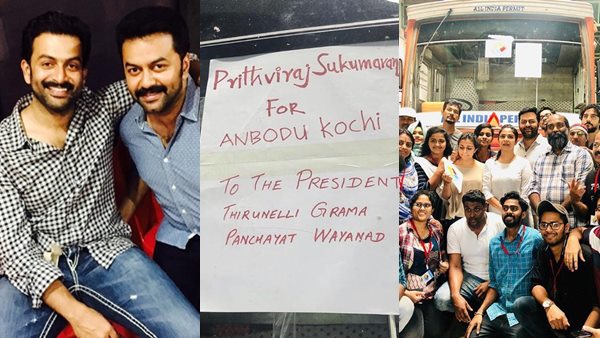 Prithviraj Sukumaran
FOR
ANBODU KOCHI
TO THE PRESIDENT
THIRUNELLI GRAMA
PANCHAYAT WAYANAD
ALL INDIA PERMIT
INDIA PER